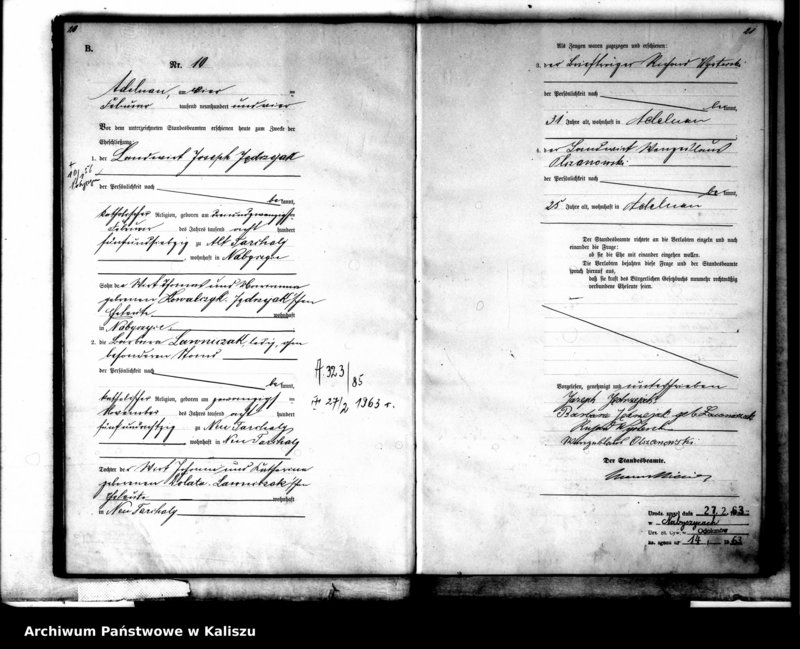 20
B.
Nr. 10
Adelnau, am vier ten
Februar tausend neunhundert und vier
Vor dem unterzeichneten Standesbeamten erschienen heute zum Zwecke der
Eheschließung:
1. der Landwirt Joseph Jędrzyak
der Persönlichkeit nach
be kannt,
katholischer Religion, geboren am
Februar des Jahres tausend acht hundert
fünfundsiebzig zu Alt Tarchaly
wohnhaft in Nabyszyce
Sohn des Wirt Thomas und Marianna
geborenen Kowalczyk, Jędrzyak'schen
Eheleute wohnhaft
in Nabyszyce
2. die Barbara Lawniczak, ledig, ohne
besonderen Stand
der Persönlichkeit nach
be kannt,
katholischer Religion, geboren am zwanzigsten
November des Jahres tausend acht hundert
fünfundachtzig zu Neu Tarchaly
wohnhaft in Neu Tarchaly
Tochter des Wirt Johann und Katharina
geborenen Lawniczak'schen
Eheleute wohnhaft
in Neu Tarchaly
A 323/85
27/2 1963 r.
21
Als Zeugen waren zugezogen und erschienen:
3. der Briefträger Richard
der Persönlichkeit nach
be kannt,
31 Jahre alt, wohnhaft in Adelnau
4. der Landwirt Wenzeslaus
Olszanowski
der Persönlichkeit nach
be kannt,
25 Jahre alt, wohnhaft in Adelnau
Der Standesbeamte richtete an die Verlobten einzeln und nach
einander die Frage:
ob sie die Ehe mit einander eingehen wollen.
Die Verlobten bejahten diese Frage und der Standesbeamte
sprach hierauf aus,
daß sie kraft des Bürgerlichen Gesetzbuchs nunmehr rechtmäßig
verbundene Eheleute seien.
Vorgelesen, genehmigt und unterschrieben
Joseph
Barbara geb Lawniczak
Olszanowski
Der Standesbeamte.
dnia 27.2.63
w Nabyszycach
Odolanów
14 1963
Archiwum Państwowe w Kaliszu